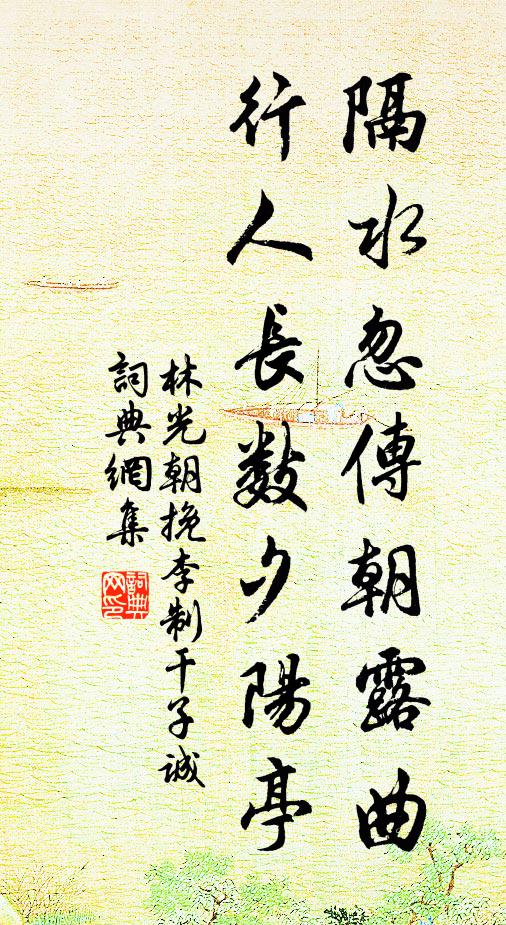 隔水忽傳朝露曲
行人長數夕陽亭
林光朝挽李制干子誠
詞典網集
詞典
网印